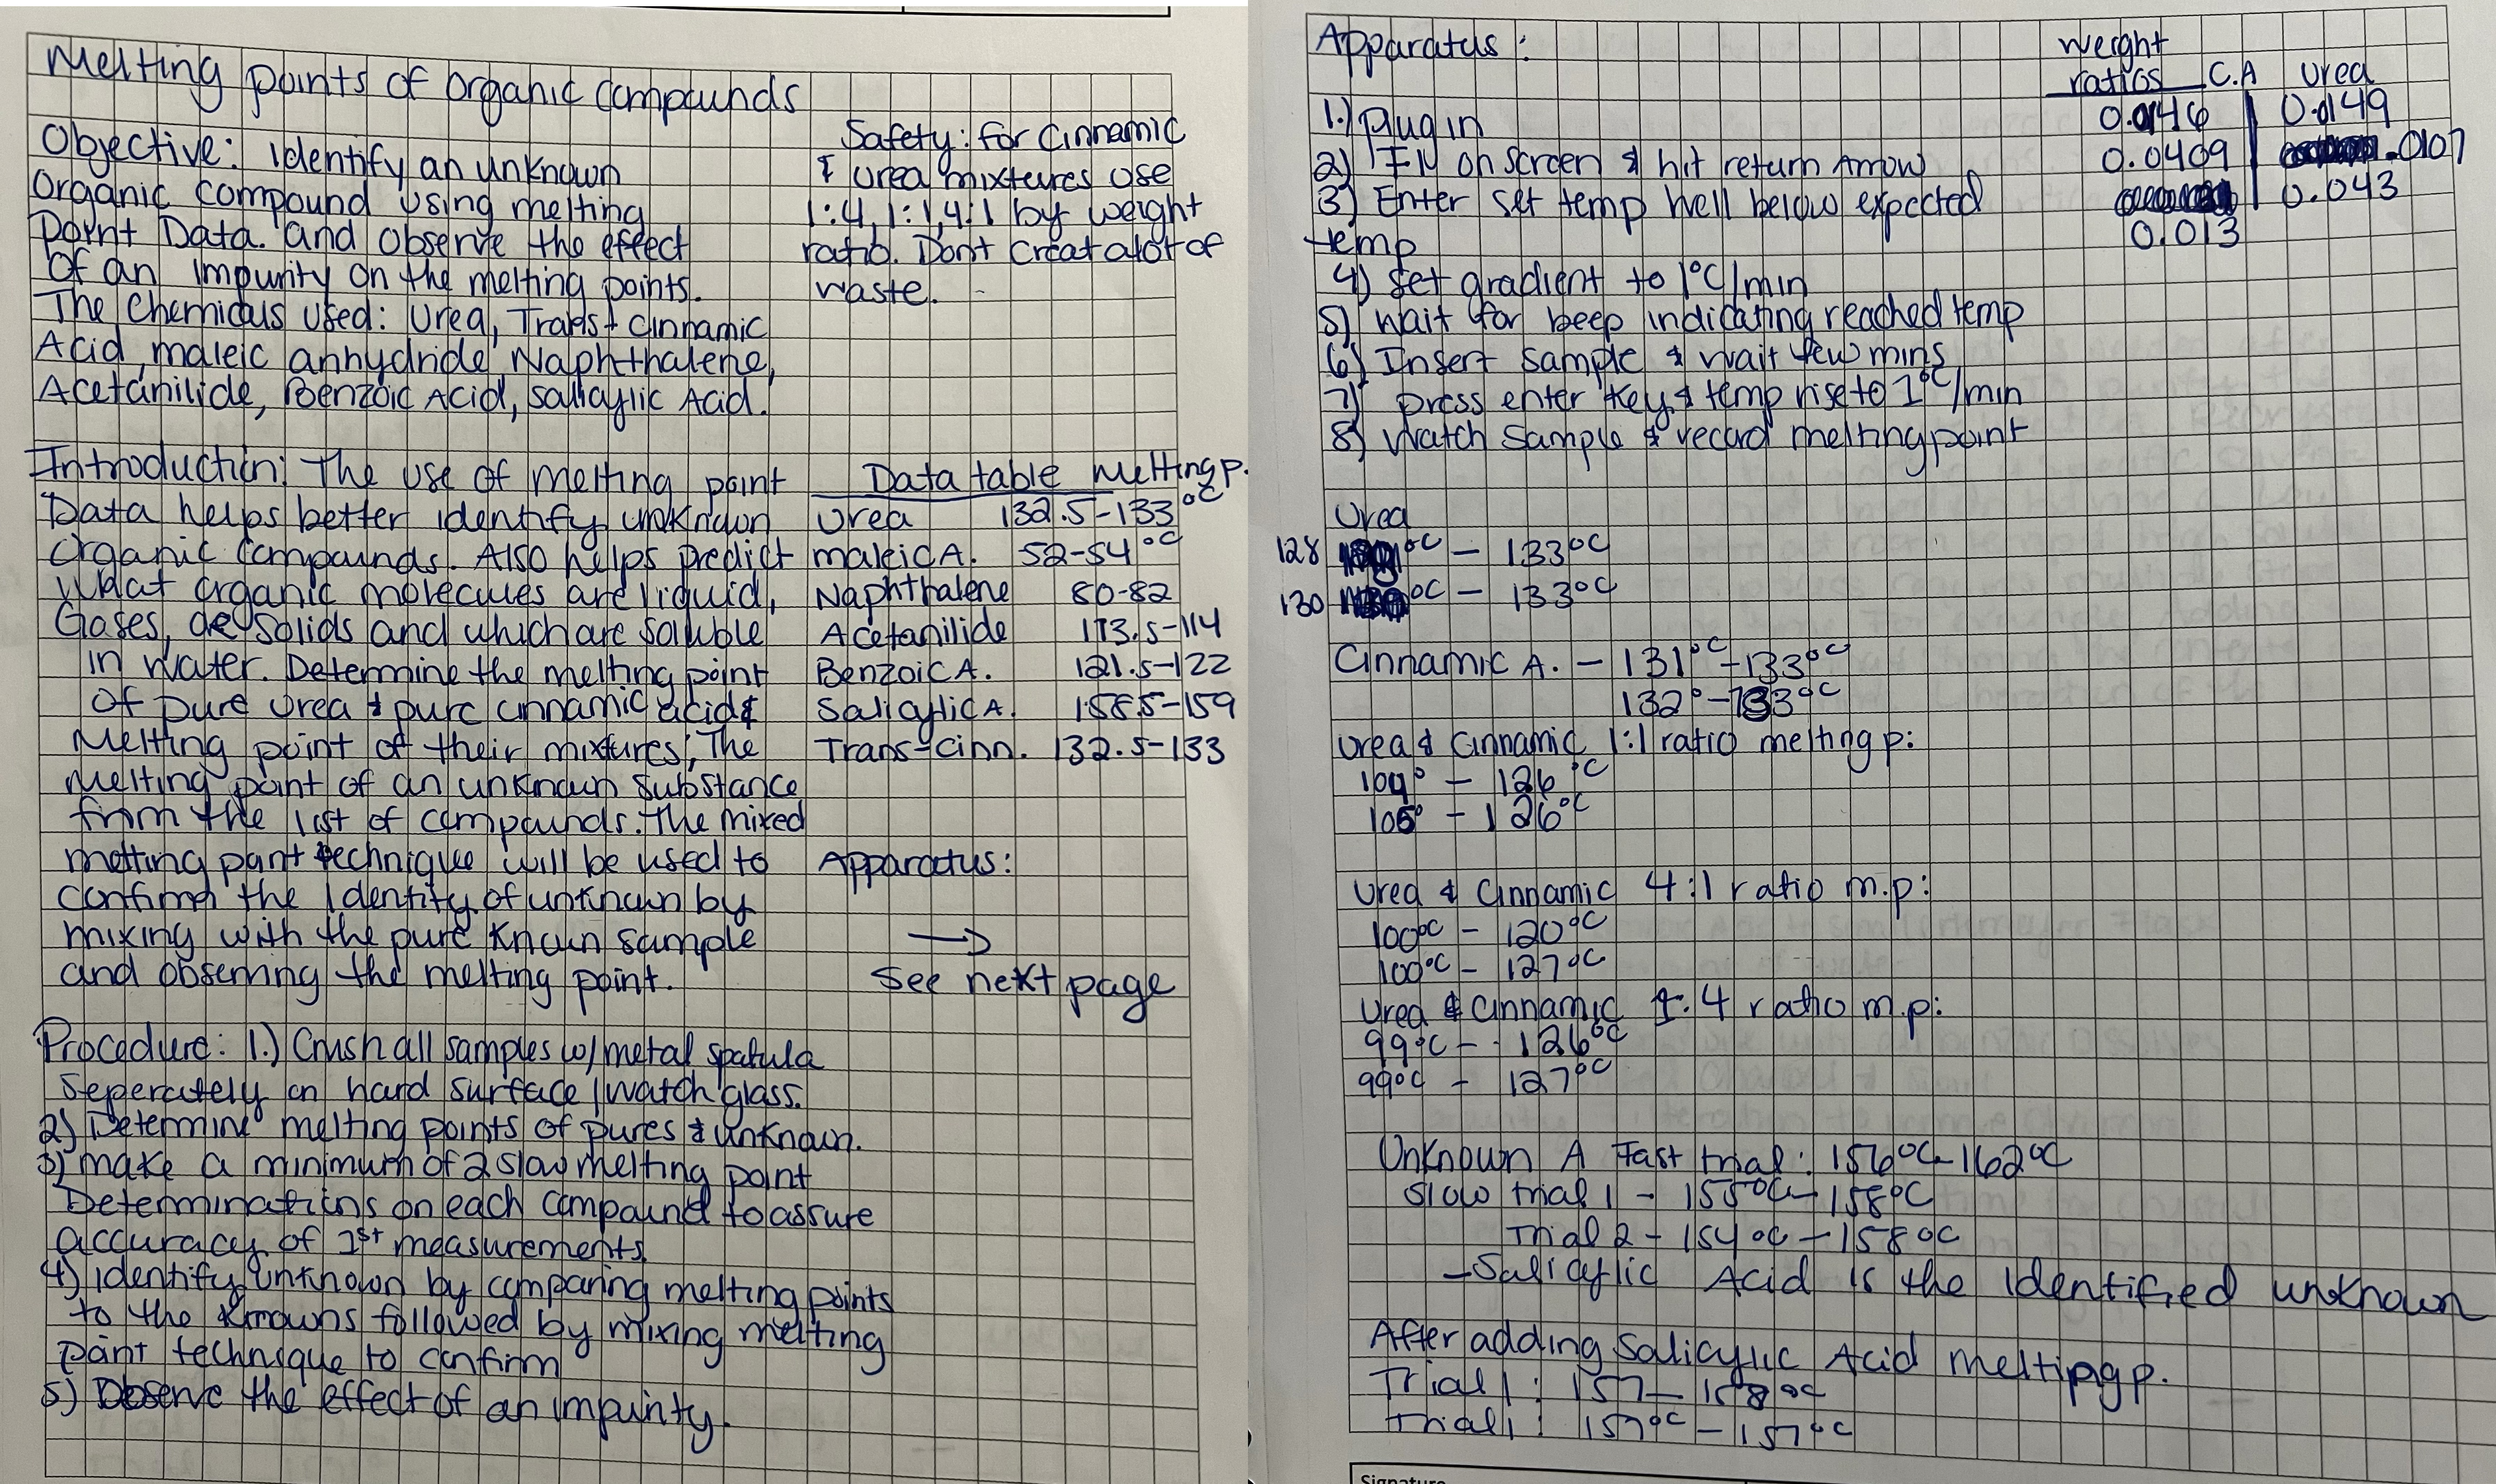 Melting points of organic compounds
Objective: Identify an unknown
organic compound using melting
point Data. and observe the effect
of an impurity on the melting points.
The chemicals used: Urea, Trans+ cinnamic
Acid, maleic anhydride, Naphthalene,
Acetanilide, Benzoic Acid, Salicylic Acid.
Safety: for Cinnamic
& urea mixtures use
1:4, 1:1, 4:1 by weight
ratio. Dont Creat alot of
waste.
Introduction: The use of melting point
Data helps better identify unknown
organic compounds. Also helps predict
what organic molecules are liquid,
Gases, or solids and which are soluble
in water. Determine the melting point
of pure urea & pure cinnamic acid &
melting point of their mixtures; The
melting point of an unknown substance
from the list of compounds. the mixed
melting point technique will be used to
confirm the identity of unknown by
mixing with the pure known sample
and observing the melting point.
Data table melting p.
Urea 132.5-133°C
maleic A. 52-54°C
Naphthalene 80-82
Acetanilide 113.5-114
Benzoic A. 121.5-122
Salicylic A. 158.5-159
Trans-cinn. 132.5-133
Apparatus:
→
See next page
Procedure: 1.) Crush all samples w/ metal spatula
seperately on hard surface/watch glass.
2) Determine melting points of pures & unknown.
3) make a minimum of 2 slow melting point
Determinations on each compound to assure
accuracy of 1st measurements.
4) identify unknown by comparing melting points
to the knowns followed by mixing melting
point technique to confirm
5) Observe the effect of an impurity.
Apparatus:
1.) Plug in
2) FN on screen & hit return Arrow
3) Enter set temp well below expected
temp
4) set gradient to 1°C/min
5) wait for beep indicating reached temp
6) Insert sample & wait few mins
7) press enter key & temp rise to 1°C/min
8) Watch sample & record melting point
weight
ratios C.A Urea
0.0146 0.0149
0.0409 .0107
0.043
0.013
Urea
128 °C - 133°C
130 °C - 133°C
Cinnamic A. - 131°C-133°C
132°-133°C
Urea & Cinnamic 1:1 ratio melting p:
104° - 126°C
105° - 126°C
Urea & Cinnamic 4:1 ratio m.p:
100°C - 120°C
100°C - 127°C
Urea & Cinnamic 1:4 ratio m.p:
99°C - 126°C
99°C - 127°C
Unknown A Fast trial: 156°C-162°C
Slow trial 1 - 155°C-158°C
Trial 2 - 154°C - 158°C
-Salicylic Acid is the identified unknown
After adding Salicylic Acid melting p.
Trial 1: 157-158°C
trial 1: 157°C - 157°C
Signature